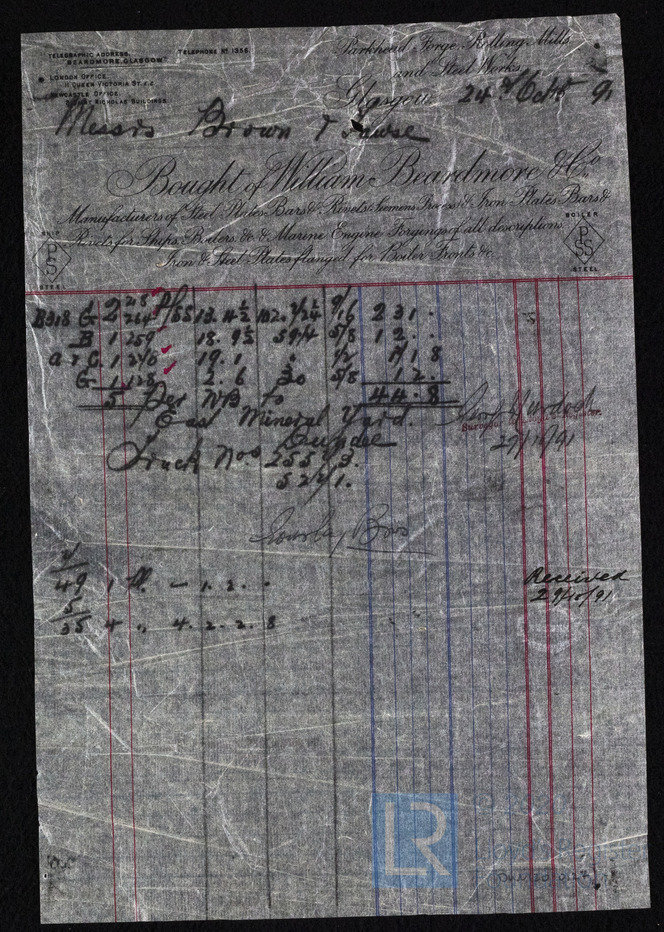 TELEGRAPHIC ADDRESS,
BEARDMORE, GLASGOW
TELEPHONE Nº 1356.
LONDON OFFICE.
11 QUEEN VICTORIA ST. E.C.
NEWCASTLE OFFICE.
ST NICHOLAS BUILDINGS.
Parkhead Forge, Rolling Mills
and Steel Works,
Glasgow, 24th Octr 91
Messrs Brown &
Bought of William Beardmore & Co
Manufacturers of Steel Plates Bars & Rivets Siemens Process & Iron Plates Bars &
Rivets for Ships, Boilers, &c & Marine Engine Forgings of all descriptions
Iron & Steel Plates flanged for Boiler Fronts &c.
SHIP
PSS
STEEL
BOILER
PSS
STEEL
B318 G 2 264 9/16 2 3 1 .
B 1 259 18. 9½ 59¼ 5/8 1 2 . .
G. 1 19.1 1/2 1 8
G 1 128 2. 6 30 5/8 1 2 .
5 44.8
Per NB to
East Mineral Yard.
Dundee
29/10/91
Truck Nos 255 3.
52 1.
Bros
49 1 — 1. 2. .
5
35 4 " 4. 2. 2. 8
Received
29/10/91
LR